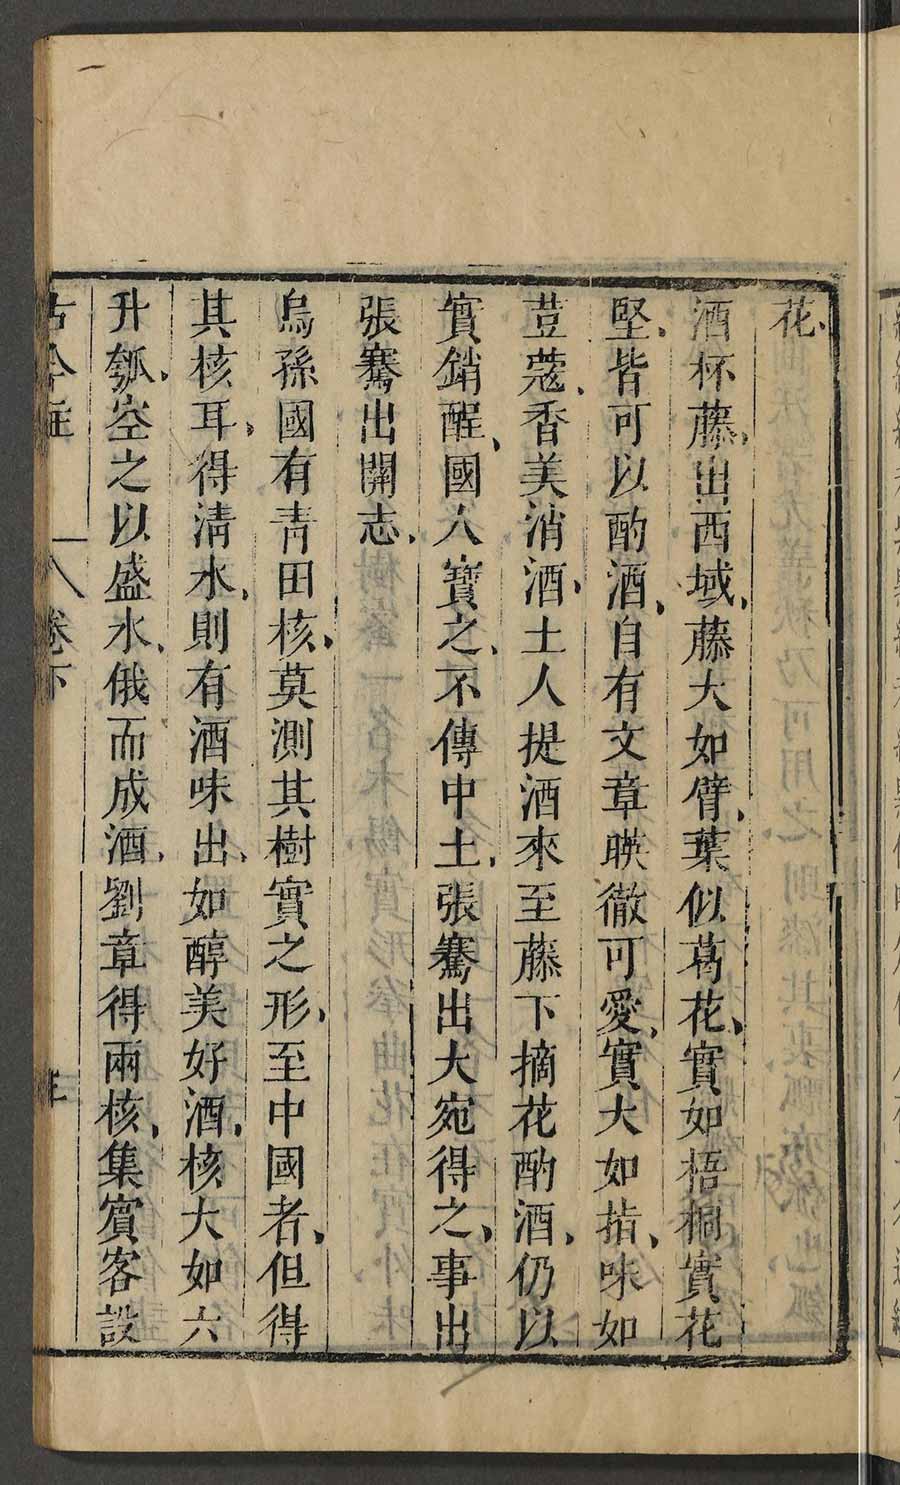 花、
酒杯藤、出西域、藤大如臂、葉似葛花、實如梧桐實花
堅、皆可以酌酒、自有文章暎徹可愛、實大如指、味如
荳蔻、香美消酒、土人提酒來至藤下摘花酌酒、仍以
實銷酲、國人寶之、不傳中土、張騫出大宛得之、事出
張騫出關志、
烏孫國有青田核、莫測其樹實之形、至中國者、但得
其核耳、得清水、則有酒味出、如醇美好酒、核大如六
升瓠、空之以盛水、俄而成酒、劉章得兩核、集賓客設
古今註 卷下